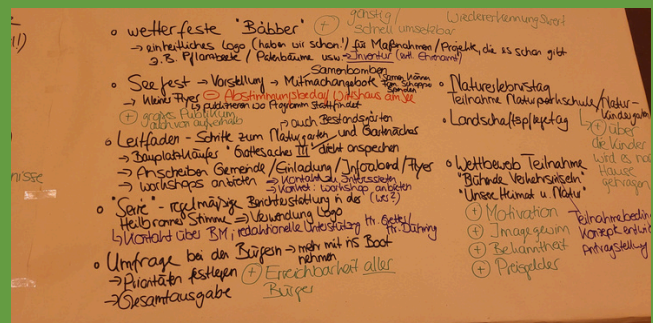 o wetterfeste "Bäbber" + günstig / schnell umsetzbar
Wiedererkennungswert
→ einheitliches Logo (haben wir schon!) für Maßnahmen/Projekte, die es schon gibt
z.B. Pflanzbeete / Patenbäume usw → Inventur (evtl. Ehrenamt)
Samenbomben
o Seefest → Vorstellung → Mitmachangebote
→ kleine Flyer ⊖ Abstimmungsbedarf Wirtshaus am See
↳ publizieren wo Programm stattfindet
+ großes Publikum auch von außerhalb
↱ auch Bestandsgärten
o Leitfaden - Schritte zum Naturgarten und Gartnaches
→ Bauplatzkäufer "Gottesacker III" direkt ansprechen
→ Anschreiben Gemeinde / Einladung / Infoabend / Flyer
→ workshops anbieten → Kontakt zu Interessierten
→ Konkret: workshop anbieten
o "Serie" - regelmäßige Berichterstattung in der (wer?)
Heilbronner Stimme → Verwendung Logo
↳ Kontakt über BM; redaktionelle Unterstützung Hr.
Hr. Dühring
o Umfrage bei den Bürgern → mehr mit ins Boot nehmen
→ Prioritäten festlegen + Erreichbarkeit aller Bürger
→ Gesamtausgabe
o Naturerlebnistag
Teilnahme Naturparkschule/Natur-
kindergarten
o Landschaftspflegetag
↳ + über
die Kinder
wird es nach
Hause
getragen
o Wettbewerb Teilnahme
"Blühende Verkehrsinseln"
"Unsere Heimat u. Natur"
+ Motivation
+ Imagegewinn
+ Bekanntheit
+ Preisgelder
Teilnahmebedin
Konzept entwi
Antragstellung